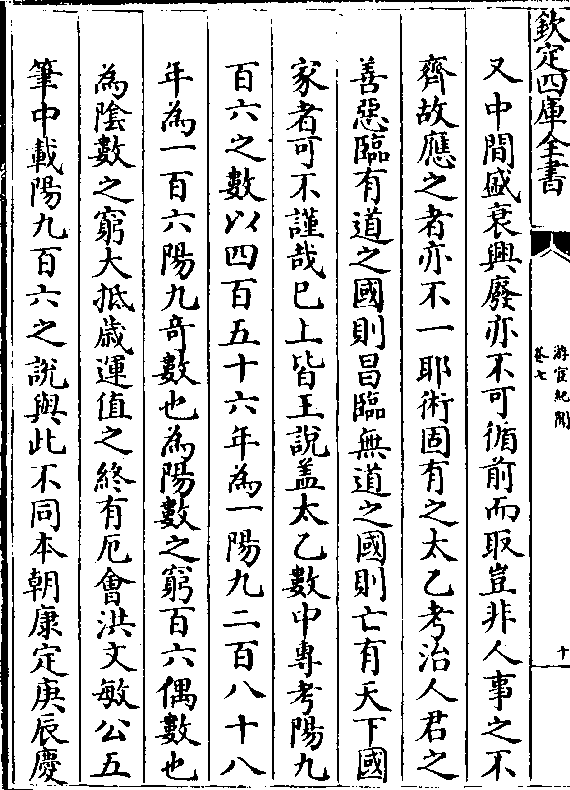 欽定四庫全書
游宦紀聞
卷七
十
又中間盛衰興廢亦不可循前而取豈非人事之不
齊故應之者亦不一耶術固有之太乙考治人君之
善惡臨有道之國則昌臨無道之國則亡有天下國
家者可不謹哉巳上皆王說盖太乙數中專考陽九
百六之數以四百五十六年為一陽九二百八十八
年為一百六陽九奇數也為陽數之窮百六偶數也
為陰數之窮大抵歲運值之終有厄會洪文敏公五
筆中載陽九百六之說與此不同本朝康定庚辰慶